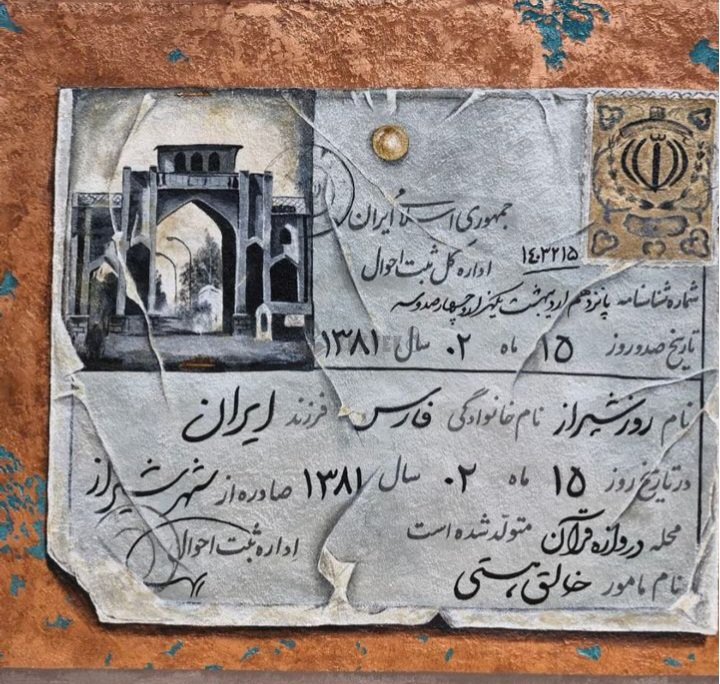 جمهوری اسلامی ایران
اداره کل ثبت احوال
۱۴۰۳۲۱۵
شماره شناسنامه پانزدهم اردیبهشت یکهزار و چهارصد و سه
تاریخ صدور روز ۱۵ ماه ۰۲ سال ۱۳۸۱
نام روز شیراز نام خانوادگی فارس فرزند ایران
در تاریخ روز ۱۵ ماه ۰۲ سال ۱۳۸۱ صادره از شهر شیراز
محله دروازه قرآن متولد شده است
اداره ثبت احوال
نام مامور خالق هستی